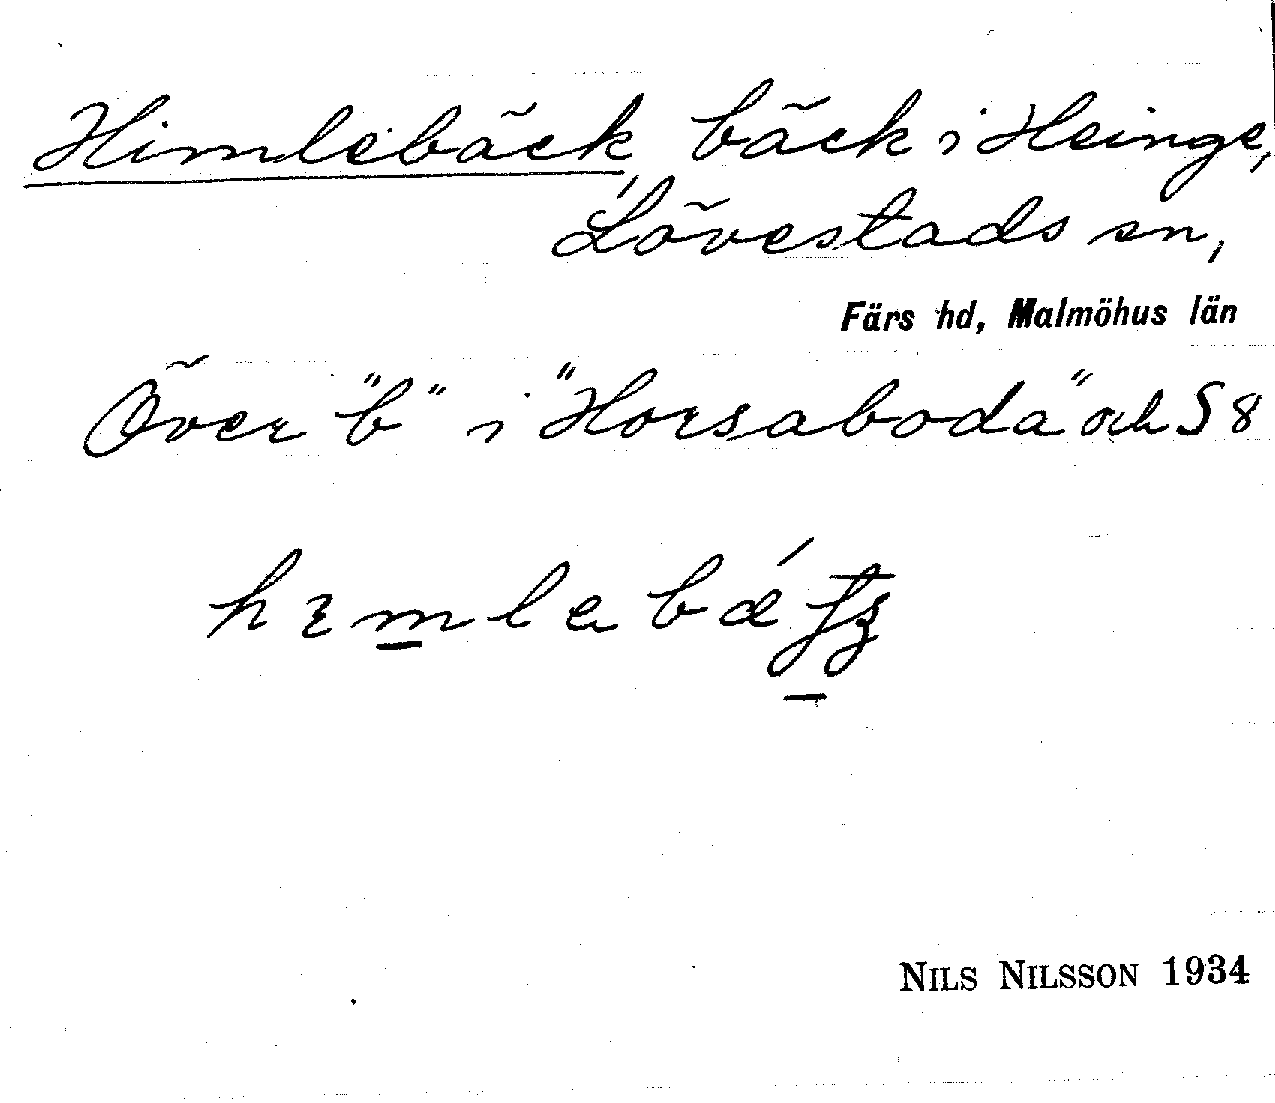 Himlebäck, bäck i Heinge,
Lövestads sn,
Färs hd, Malmöhus län
Över "b" i "Horsaboda" och S 8
NILS NILSSON 1934